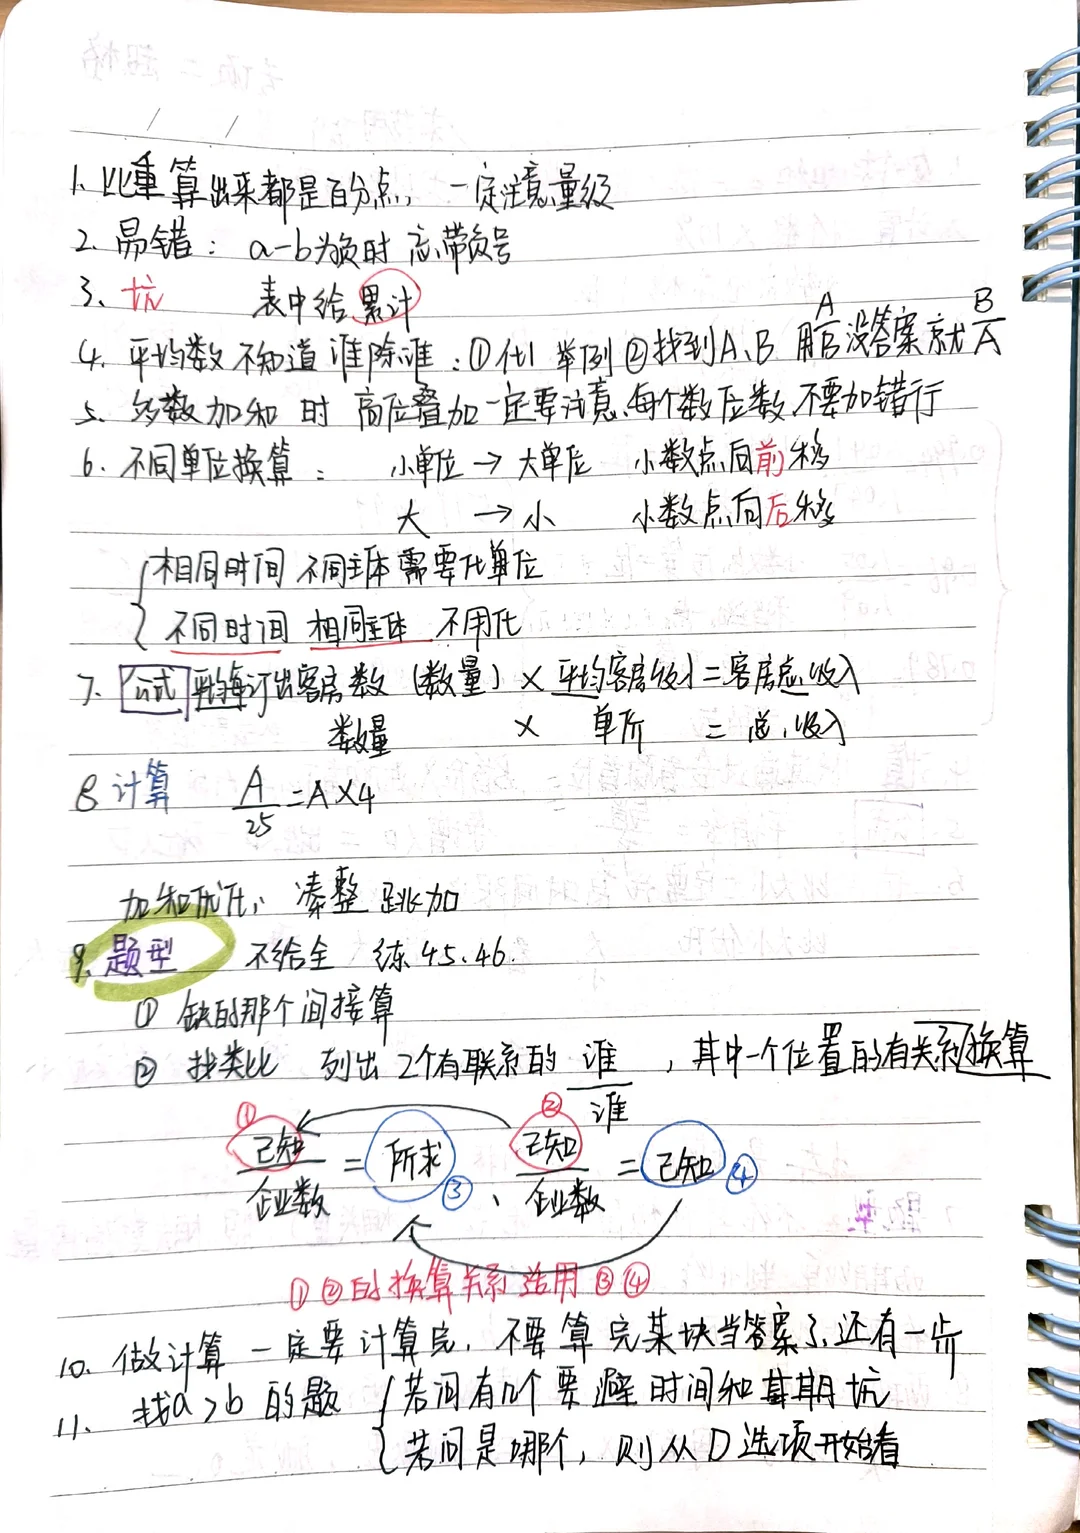 1. 比重算出来都是百分点，一定注意量级
2. 易错：a-b为负时 忘带负号
3. 坑 表中给累计
4. 平均数不知道谁除谁：①代1举例 ②找到A、B 用A/B没答案就B/A
5. 多数加和时 高位叠加一定要注意每个数位数，不要加错行
6. 不同单位换算： 小单位→大单位 小数点向前移
大 → 小 小数点向后移
相同时间 不同主体需要化单位
不同时间 相同主体 不用化
7. 公式 平均每订出客房数（数量）× 平均客房 = 客房总收入
数量 × 单价 = 总收入
8 计算 A/25=A×4
加和优化： 凑整 跳加
9. 题型 不给全 练45.46.
① 缺的那个间接算
② 找类比 列出2个有联系的 谁/谁，其中一个位置的有关系换算
① ②
已知/企业数 = 所求③、已知/企业数 = 已知④
①②的换算关系适用③④
10. 做计算一定要计算完，不要算完某块当答案了还有一步
11. 找a>b的题 若问有几个要避时间和基期坑
若问是哪个，则从D选项开始看